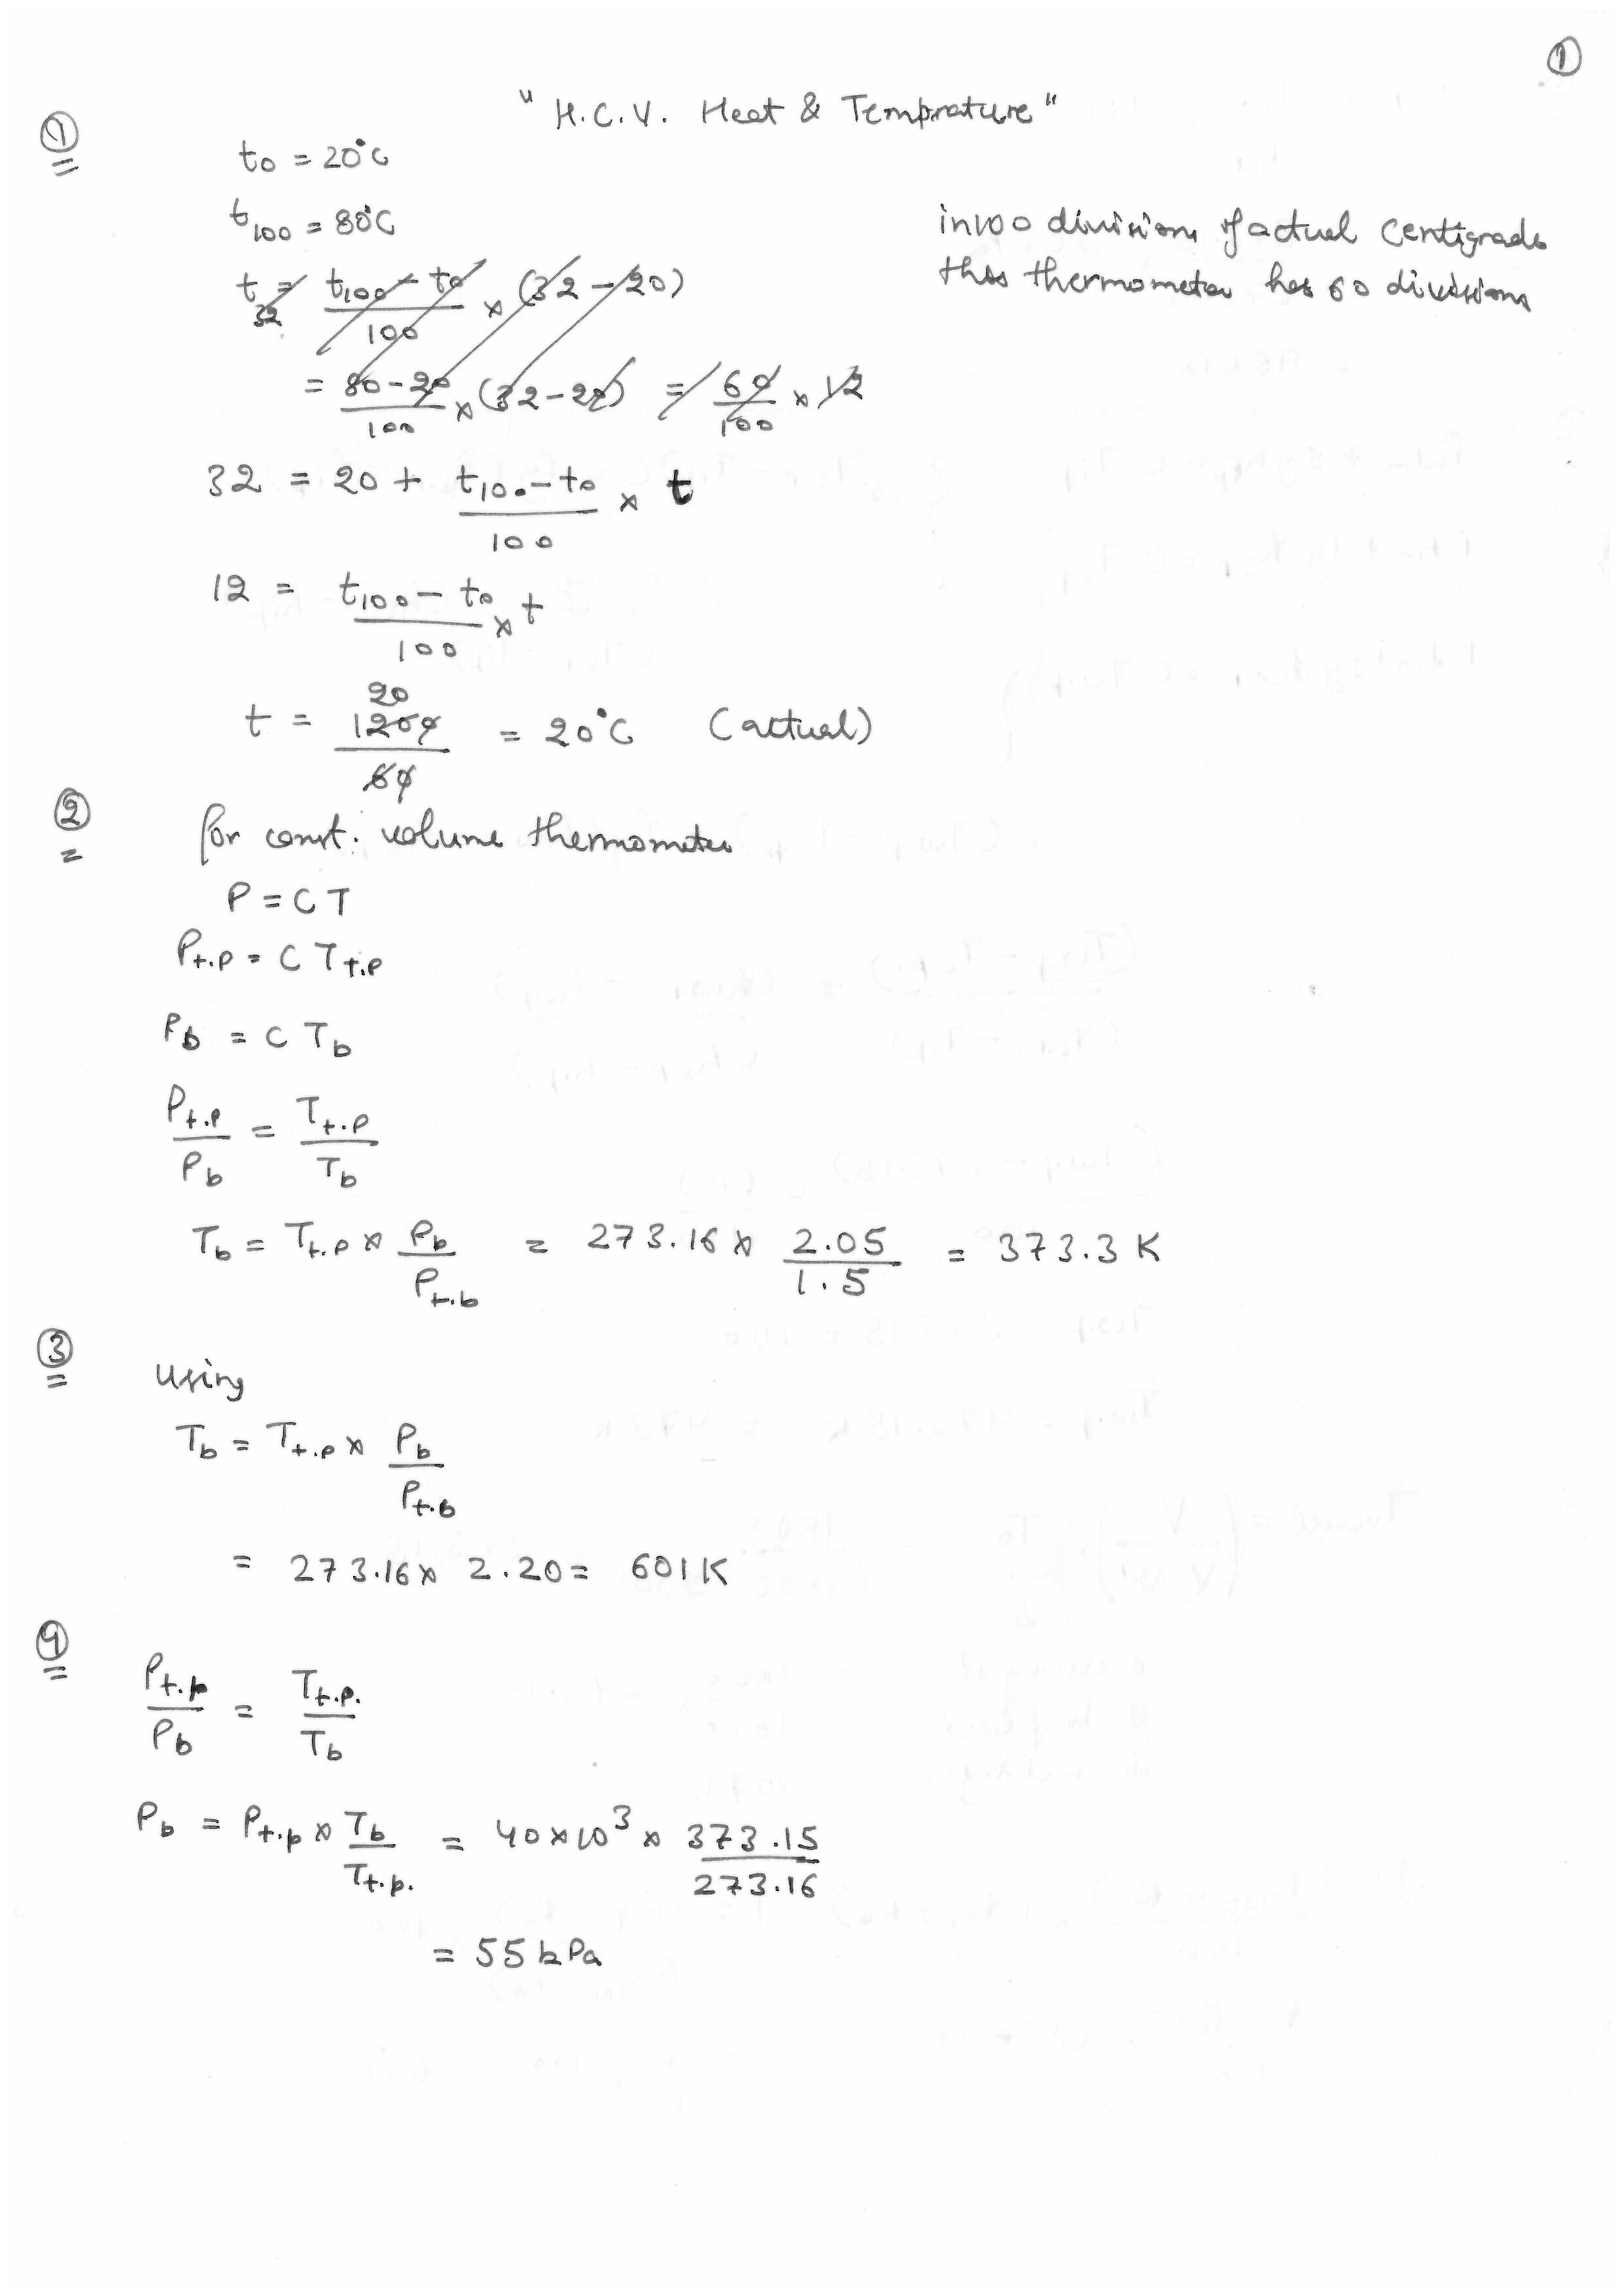 ①
"H.C.V. Heat & Temprature"
①
t0 = 20°C
t100 = 80°C
in 100 divisions of actual Centigrade
this thermometer has 60 divisions
t32 = (t100 - t0)/100 × (32 - 20)
= (80 - 20)/100 × (32 - 20) = 60/100 × 12
32 = 20 + (t100 - t0)/100 × t
12 = (t100 - t0)/100 × t
20
t = 1200/60 = 20°C (actual)
②
for const. volume thermometer
P = CT
Pt.p = C Tt.p
Pb = C Tb
Pt.p/Pb = Tt.p/Tb
Tb = Tt.p × Pb/Pt.b = 273.16 × 2.05/1.5 = 373.3 K
③
using
Tb = Tt.p × Pb/Pt.b
= 273.16 × 2.20 = 601K
④
Pt.p/Pb = Tt.p./Tb
Pb = Pt.p × Tb/Tt.p. = 40×10³ × 373.15/273.16
= 55 kPa